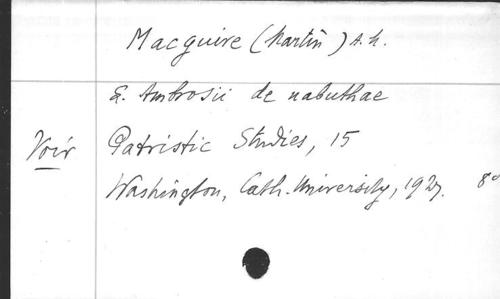 Macguire (Martin) A. h.
S. Ambrosii de nabuthae
Voir Patristic Studies, 15
Washington, Cath. University, 1927. 8°